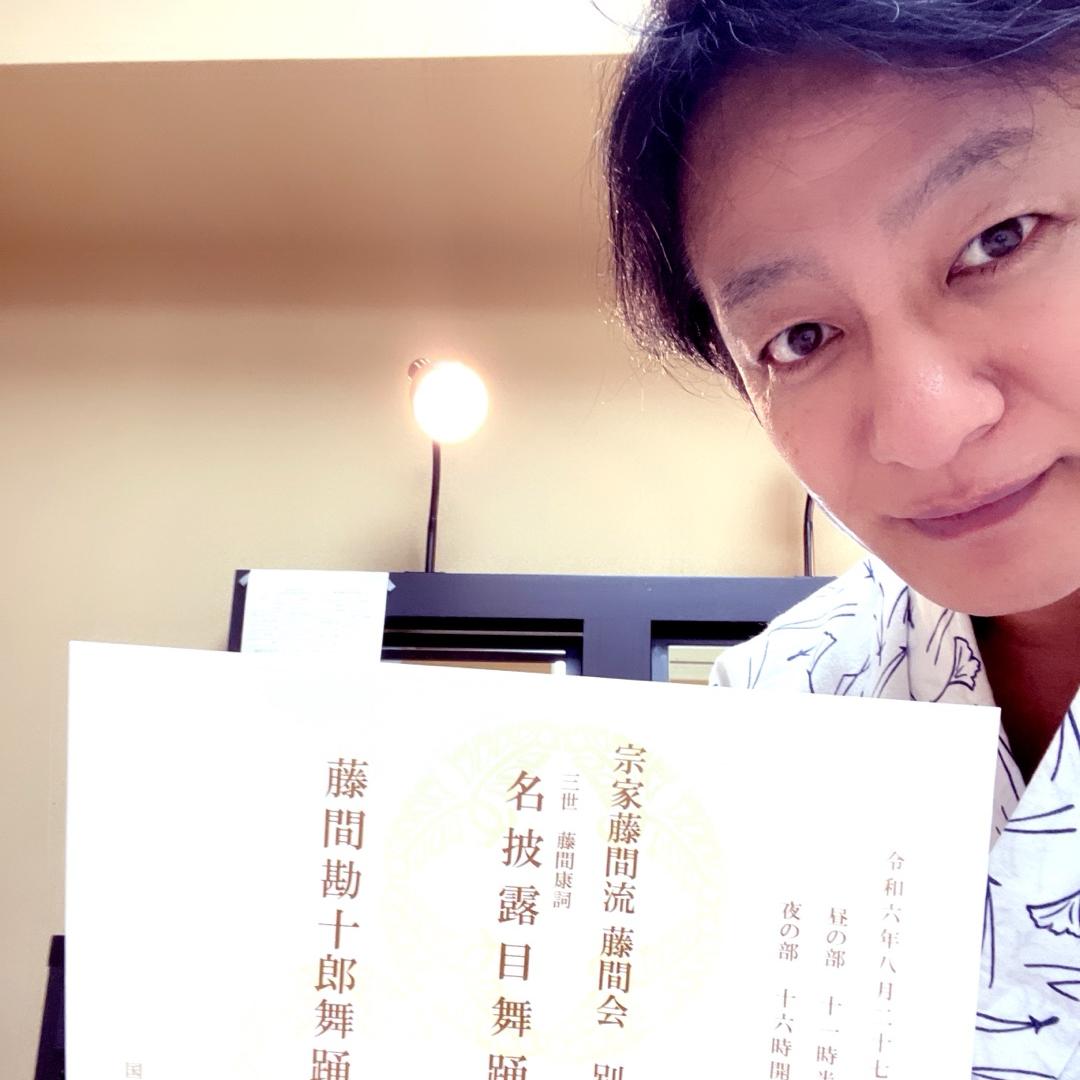 令和六年八月二十七
昼の部 十一時半
夜の部 十六時開
宗家藤間流 藤間会 別
三世 藤間康詞
名披露目舞踊
藤間勘十郎舞踊
国